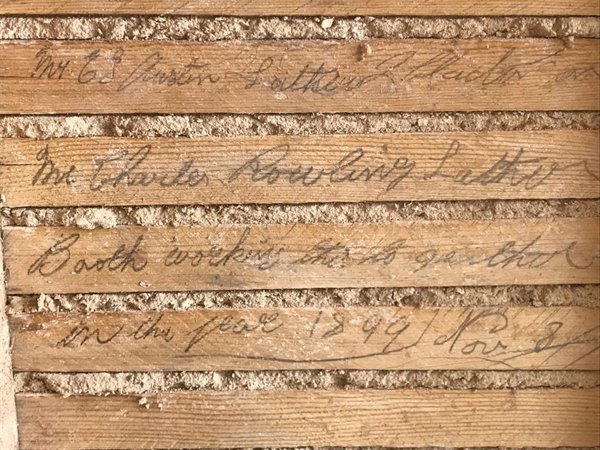 Mr E S Austin Lather & Plaster
Mr Charles Rowling Lather
Booth workin
in the year 1899 Nov. 8